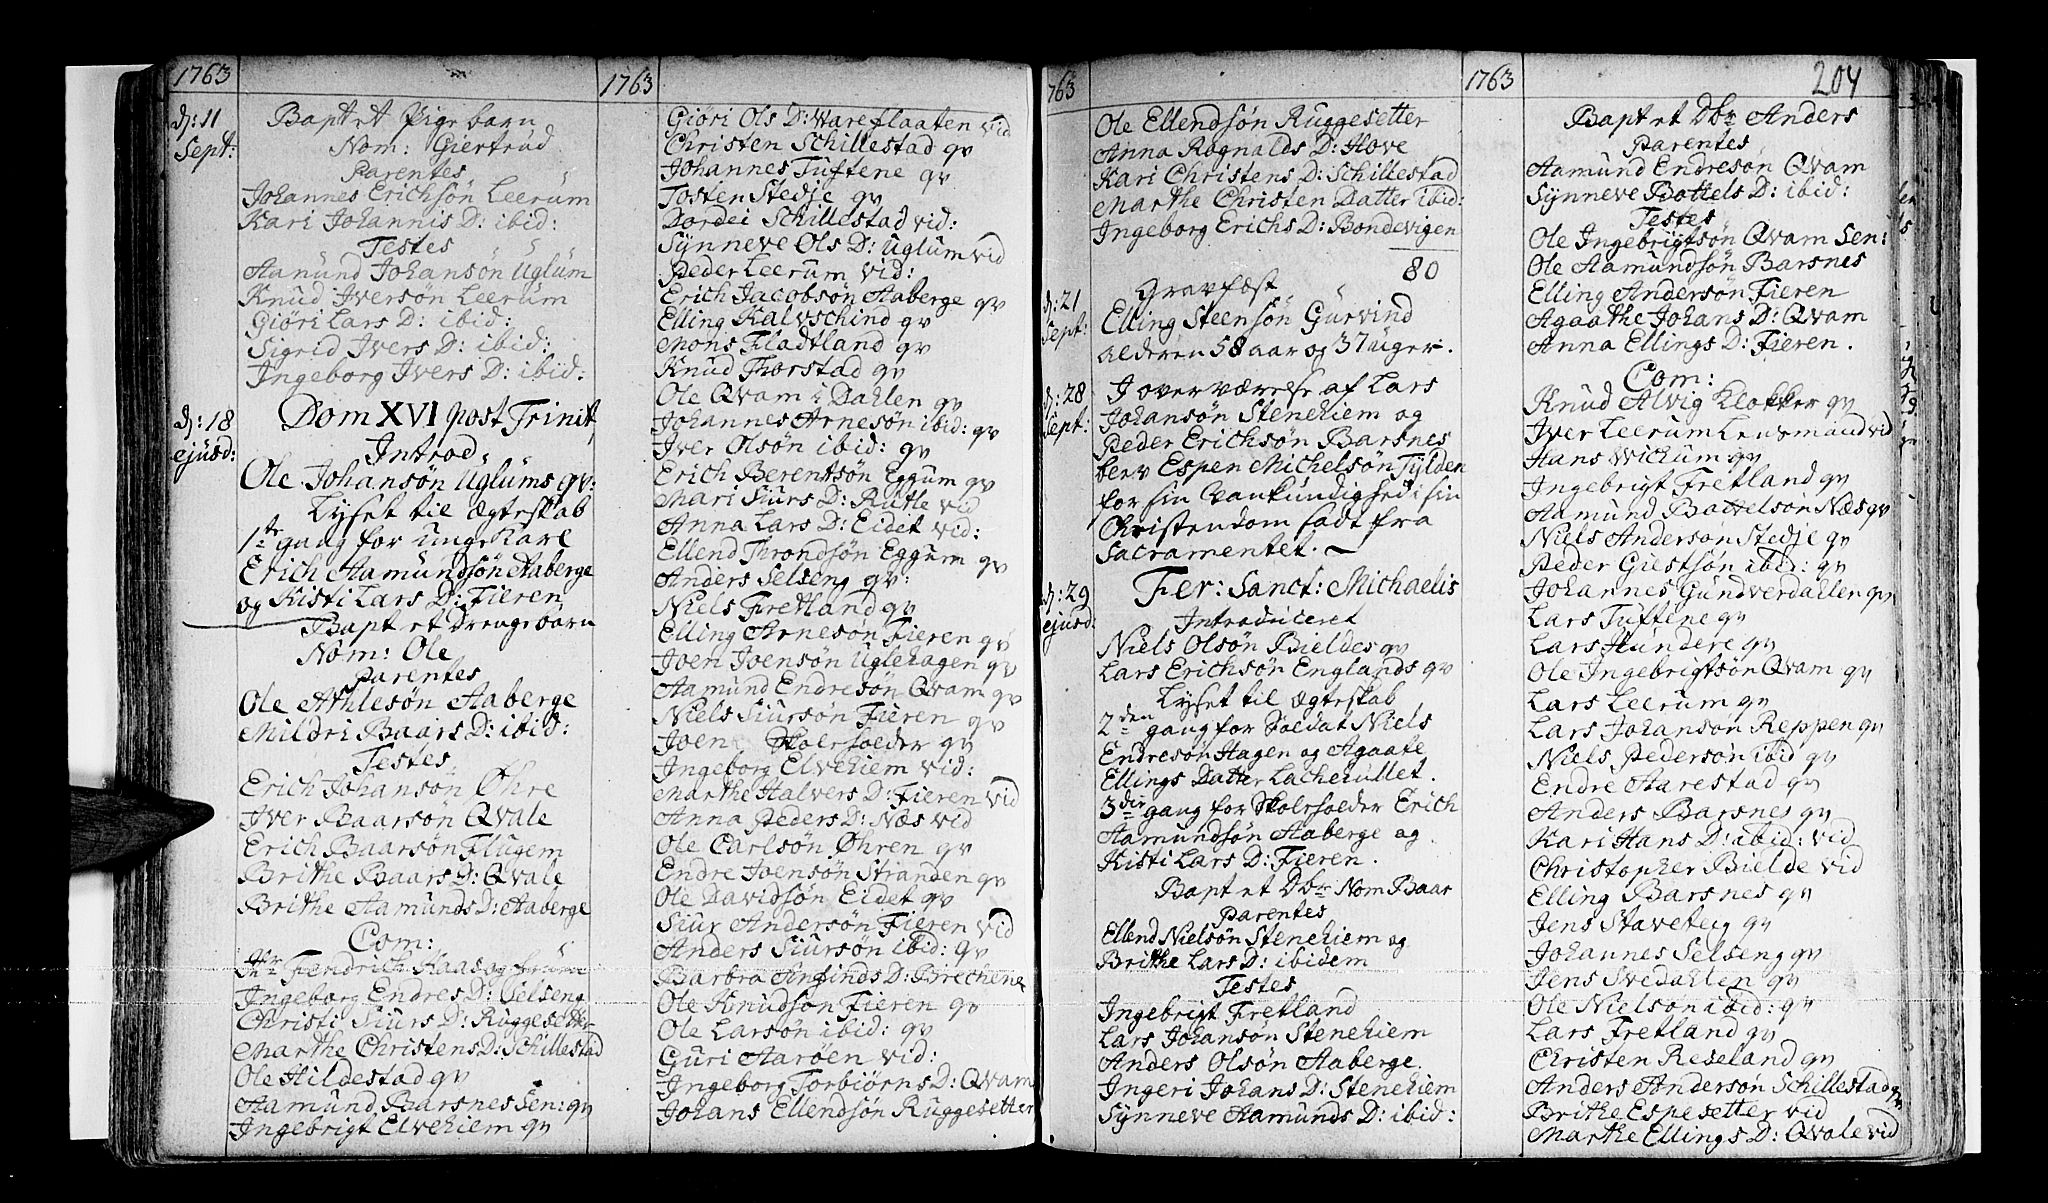 1763
d: 11
Sept:
Bapt et Pige barn
Nom: Giertrud
Parentes
Johannes Erichsøn Leerum
Kari Johannis D: ibid:
Testes
Aamund Johansøn Uglum
Knud Iversøn Leerum
Giøri Lars D: ibid:
Sigrid Ivers D: ibid:
Ingeborg Ivers D: ibid:
d: 18
ejusd:
Dom XVI post Trinit,
Introd:
Ole Johansøn Uglums qv:
Lyset til Ægteskab
1ste gang for unge Karl
Erich Aamundsøn Aaberge
og Kisti Lars D: Fieren
Bapt et Drengebarn
Nom: Ole
Parentes
Ole Athlesøn Aaberge
Mildri Baars D: ibid:
Testes
Erich Johansøn Øhre
Iver Baarsøn Qvale
Erich Baarsøn Flugem
Brithe Baars D: Qvale
Brithe Aamunds D: Aaberge
Com:
Hr Fendrich Haas og frue
Ingeborg Endres D: Selseng
Christi Siurs D: Ruggesetter
Marthe Christens D: Schillestad
Ole Hildestad qv
Aamund Barsnes Sen: qv
Ingebrigt Elvehiem qv
1763
Giöri Ols D: Vareflaaten vid
Christen Schillestad qv
Johannes Tuftene qv
Tosten Stedje qv
Dordei Schillestad vid:
Synneve Ols D: Uglum vid
Peder Leerum vid:
Erich Jacobsøn Aaberge qv
Elling Kalvschind qv
Mons Fladtland qv
Knud Thorstad qv
Ole Qvam i Dahlen qv
Johannes Arnesøn ibid: qv
Iver Olsøn ibid: qv
Erich Berentsøn Eggum qv
Mari Siurs D: Ruthe vid
Anna Lars D: Eidet vid:
Ellend Throndsøn Eggum qv
Anders Selseng qv:
Niels Fretland qv
Elling Arnesøn Fieren qv
Joen Joensøn Uglehagen qv
Aamund Endresøn Qvam qv
Niels Siursøn Fieren qv
Joen Skoleholder qv
Ingeborg Elvehiem vid:
Marthe Halvers D: Fieren vid
Anna Peders D: Næs vid
Ole Carlsøn Øhren qv
Endre Joensøn Stranden qv
Ole Davidsøn Eidet qv
Siur Andersøn Fieren vid
Anders Siursøn ibid: qv
Barbra Anfinds D: Brechene
Ole Knudsøn Fieren qv
Ole Larsøn ibid: qv
Guri Aarøen vid:
Ingeborg Torbiørns D: Qvam
Johans Ellendsøn Ruggesetter
763
Ole Ellendsøn Ruggesetter
Anna Rognalds D: Hove
Kari Christens D: Schillestad
Marthe Christen Datter ibid:
Ingeborg Erichs D: Bondevigen
80
d: 21
Sept:
Gravfæst
Elling Steensøn Gurvind
alderen 58 aar og 37 uger.
d: 28
Sept:
I overværelse af Lars
Johansøn Stenehiem og
Peder Erichsøn Barsnes
blev Espen Michelsøn Tylden
for sin Vankundighed i sin
Christendom sadt fra
Sacramentet.
d: 29
ejusd:
Fer: Sanct: Michaelis
Introduceret
Niels Olsøn Bieldes qv
Lars Erichsøn Englands qv
Lyset til Ægteskab
2den gang for Soldat Niels
Endresøn Hagen og Agaate
Ellings Datter Lachehullet.
3die gang for Skoleholder Erich
Aamundsøn Aaberge og
Kisti Lars D: Fieren.
Bapt et Dbr Nom Baar
Parentes
Ellend Nielsøn Stenehiem og
Brithe Lars D: ibidem
Testes
Ingebrigt Fretland
Lars Johansøn Stenehiem
Anders Olsøn Aaberge
Ingeri Johans D: Stenehiem
Synneve Aamunds D: ibid:
1763
204
Bapt et Dbr Anders
Parentes
Aamund Endresøn Qvam
Synneve Bottels D: ibid:
Testes
Ole Ingebrigtsøn Qvam Sen:
Ole Aamundsøn Barsnes
Elling Andersøn Fieren
Agaathe Johans D: Qvam
Anna Ellings D: Fieren.
Com:
Knud Alvig Klokker qv
Iver Leerum Lensmand vid
Hans Vichum qv
Ingebrigt Fretland qv
Aamund Battelsøn Næs qv
Niels Anderson Stedje qv
Peder Giestsøn ibid: qv
Johannes Gundverdahlen qv
Lars Tuftene qv
Lars Hundere qv
Ole Ingebrigtsøn Qvam qv
Lars Leerum qv
Lars Johansøn Reppen qv
Niels Pedersøn ibid qv
Endre Aarestad qv
Anders Barsnes qv
Kari Hans D: ibid: vid
Christopher Bielde vid
Elling Barsnes qv
Jens Staveteig qv
Johannes Selseng qv
Jens Svedahlen qv
Ole Nielsøn ibid: qv
Lars Fretland qv
Christen Reseland qv
Anders Andersøn Schillestad qv
Brithe Espesetter vid
Marthe Ellings D: Qvale vid